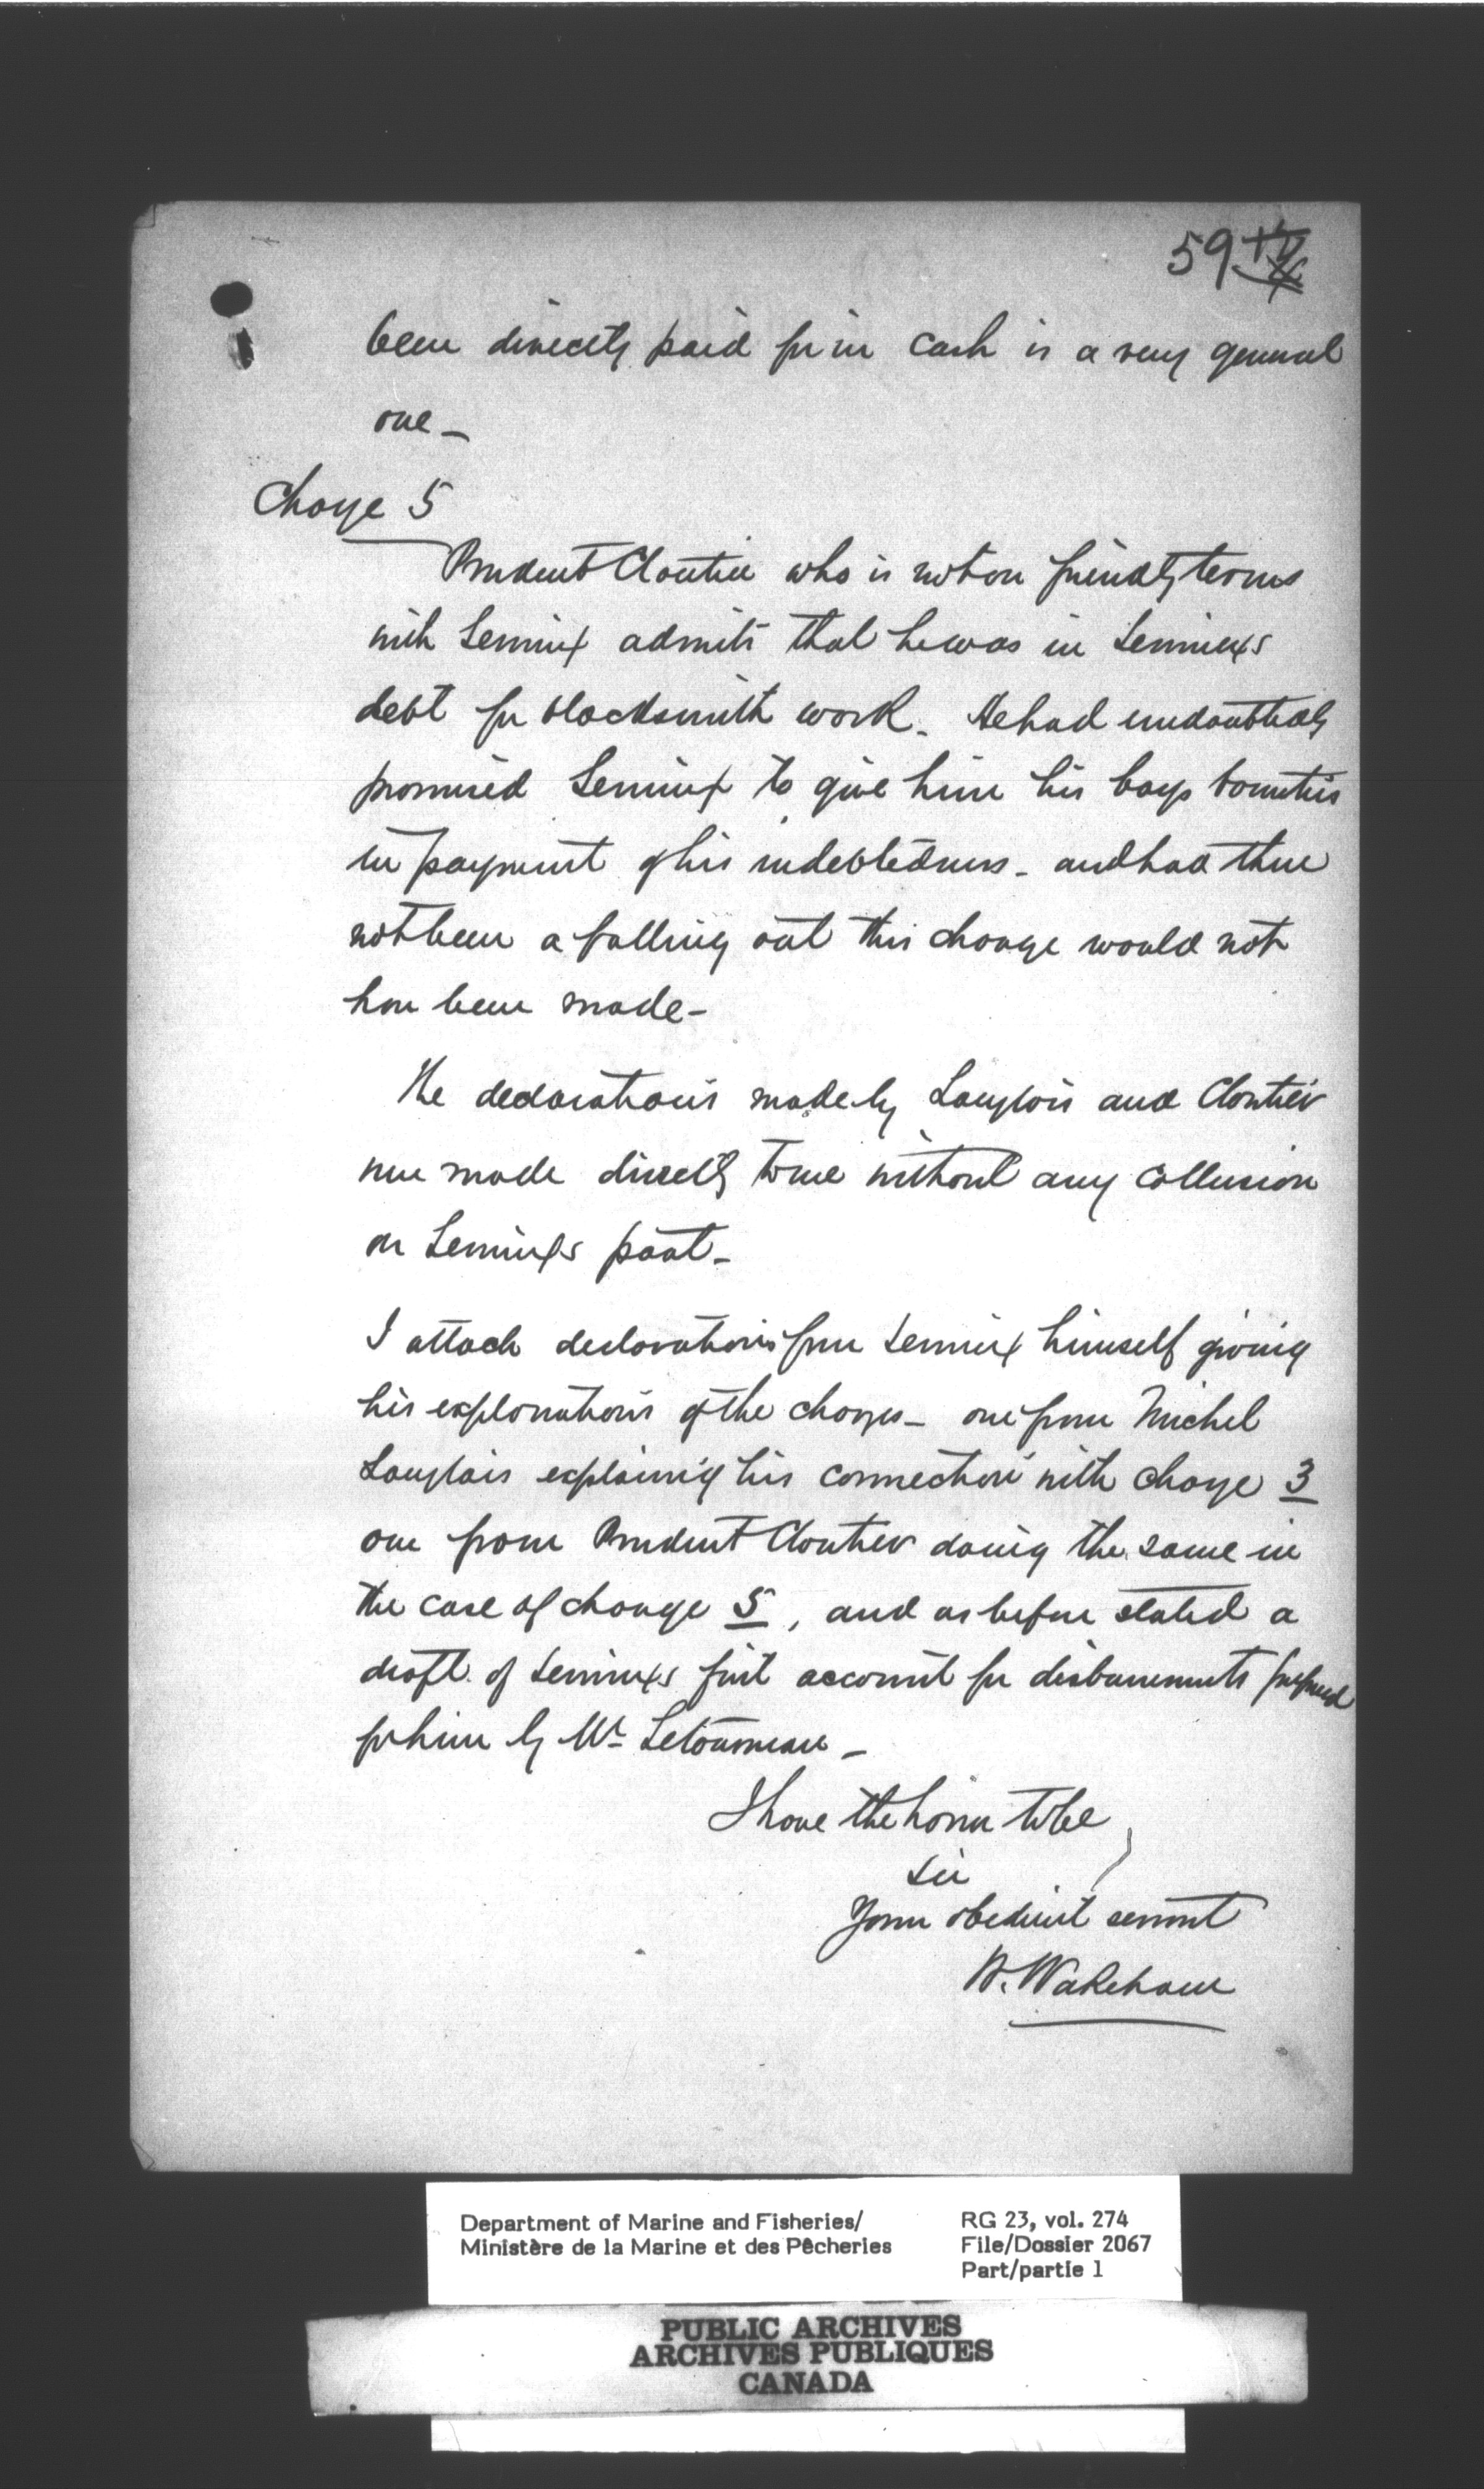 59
been directly paid for in cash is a very general
one –
Charge 5
Prudent Cloutier who is not on friendly terms
with Lemieux admits that he was in Lemieuxs
debt for blacksmith work. He had undoubtedly
promised Lemieux to give him his boys bounties
in payment of his indebtedness – and had there
not been a falling out this charge would not
have been made –
The declarations made by Langlois and Cloutier
were made directly to me without any collusion
on Lemieuxs part –
I attach declarations from Lemieux himself giving
his explanations of the charges – one from Michel
Langlois explaining his connection with charge 3
one from Prudent Cloutier doing the same in
the case of charge 5, and as before stated a
draft of Lemieuxs first account for disbursements prepared
for him by Mr Letourneau –
I have the honor to be
Sir
Your obedient servant
W. Wakeham
Department of Marine and Fisheries/
Ministère de la Marine et des Pêcheries
RG 23, vol. 274
File/Dossier 2067
Part/partie 1
PUBLIC ARCHIVES
ARCHIVES PUBLIQUES
CANADA